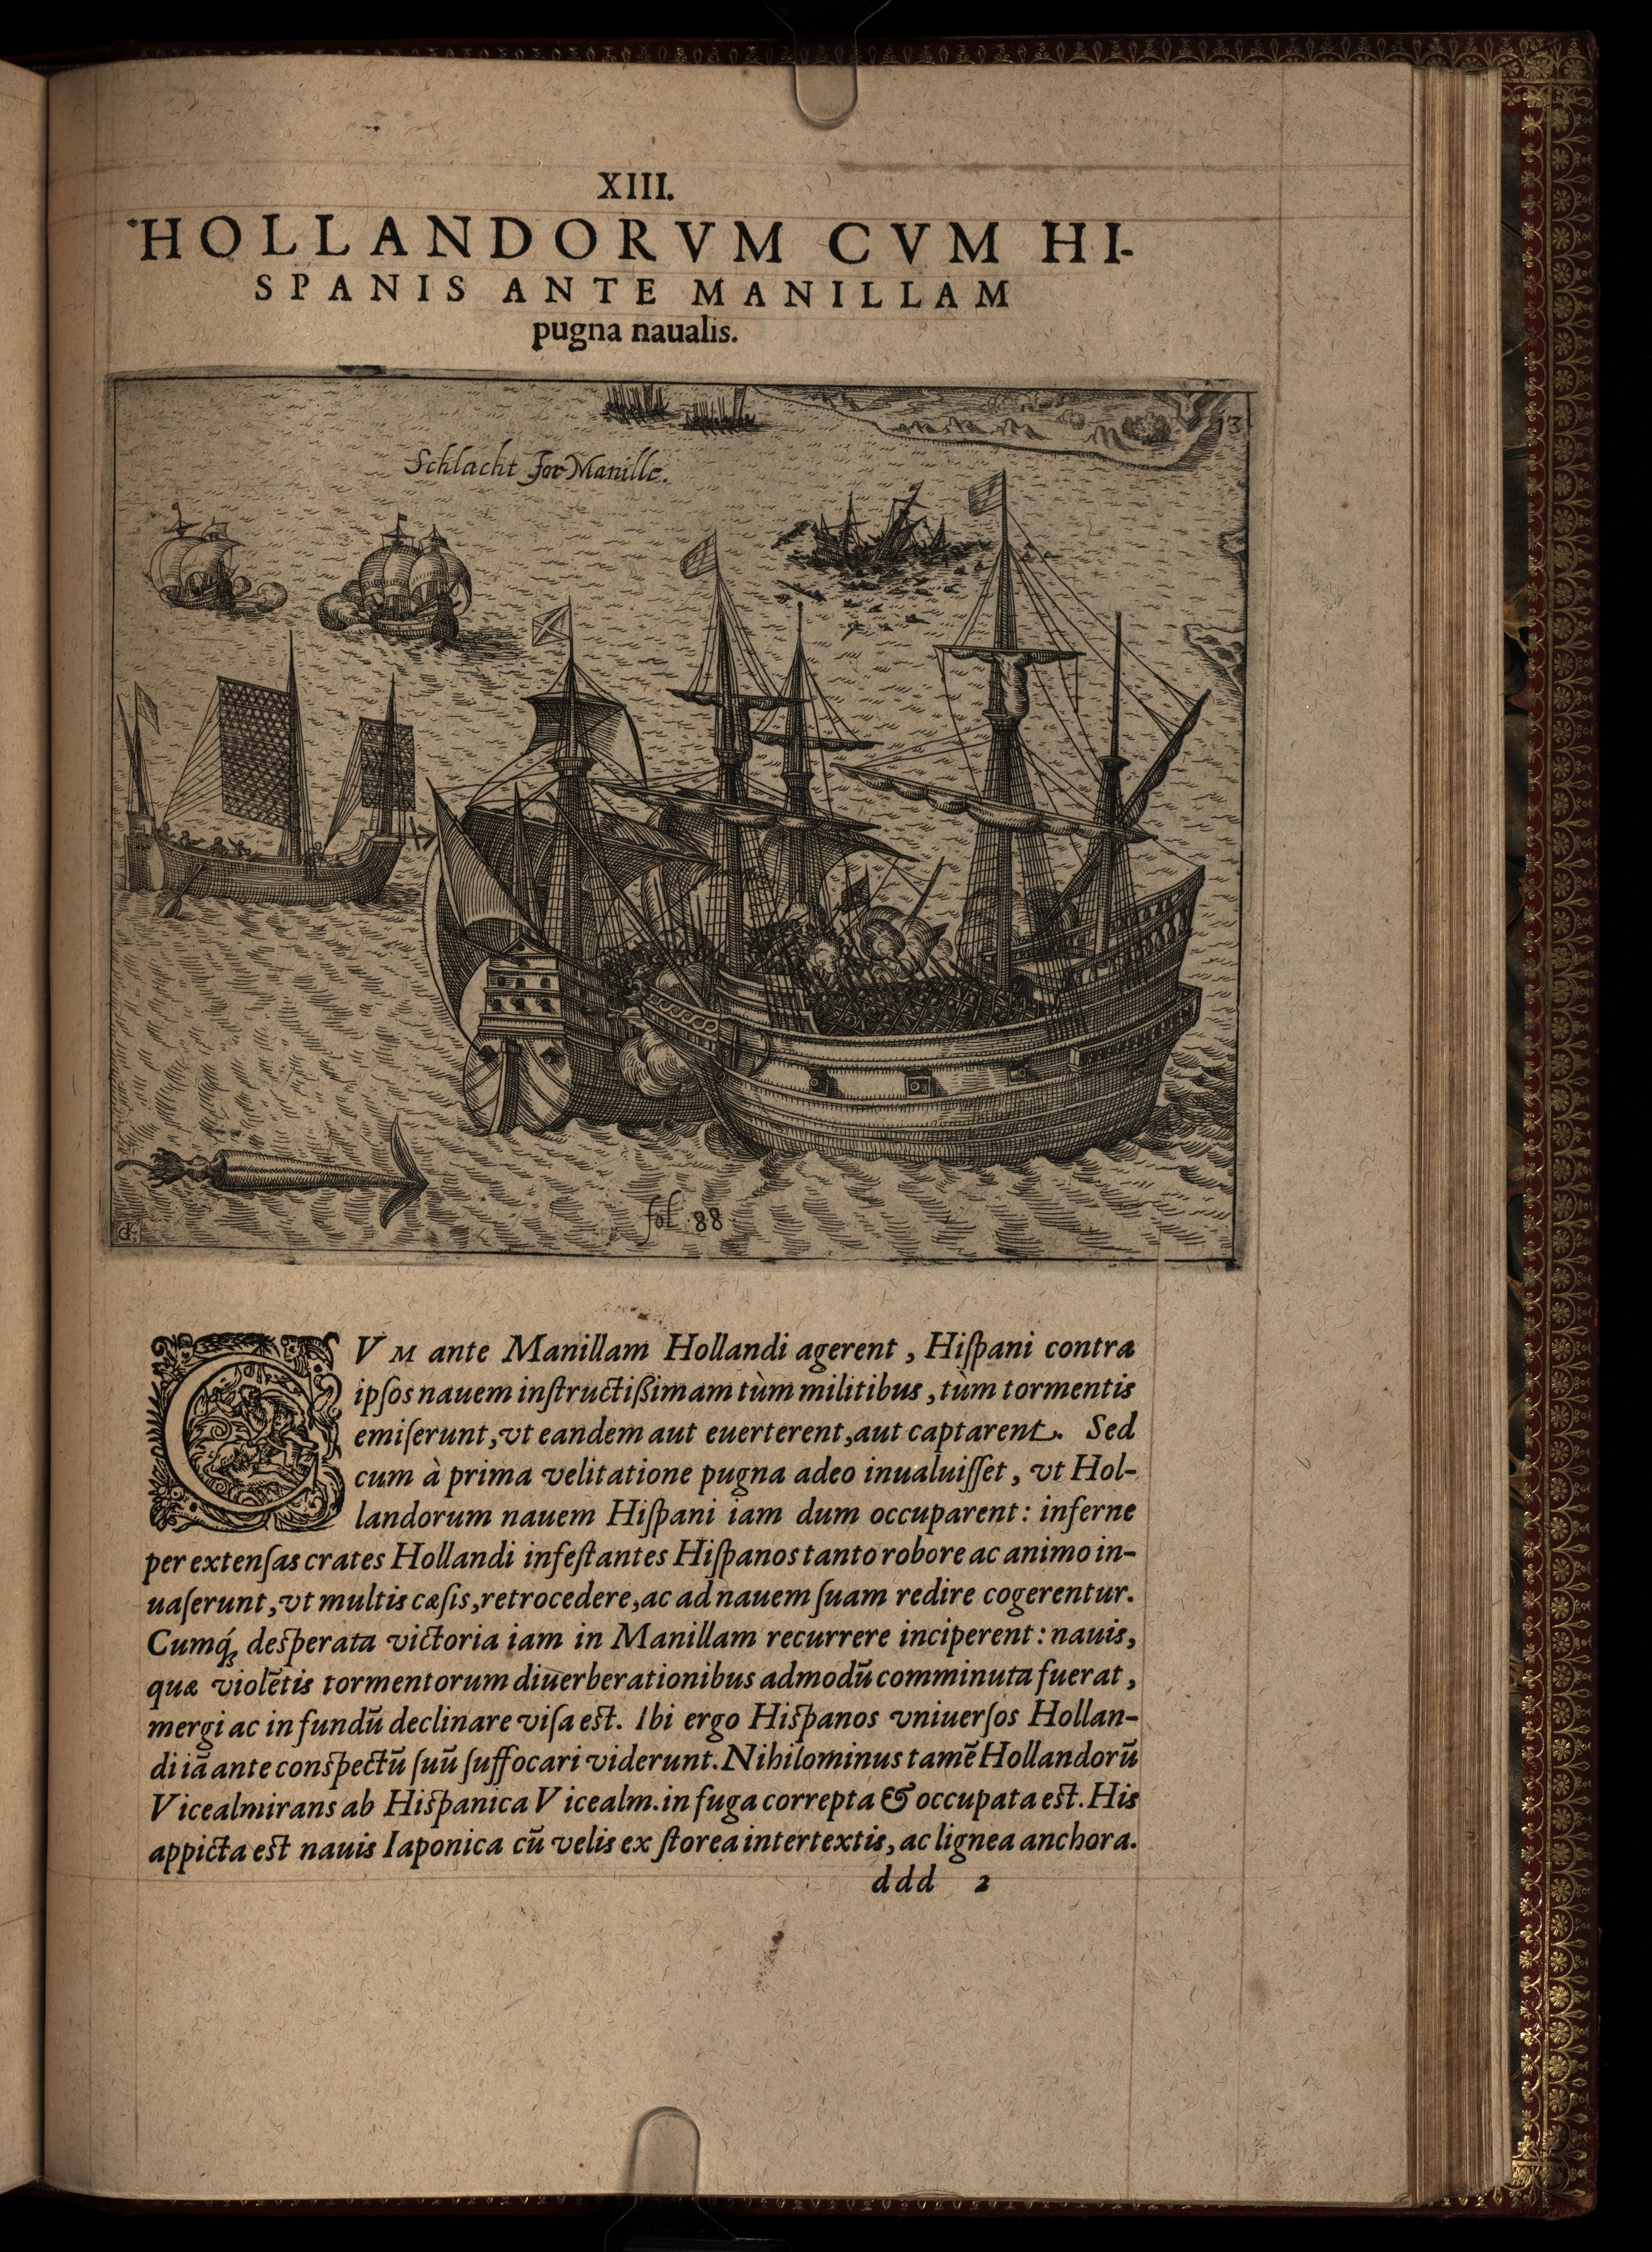 XIII.
HOLLANDORVM CVM HI-
SPANIS ANTE MANILLAM
pugna naualis.
13
Schlacht for Manille.
fol 88
GK
CVM ante Manillam Hollandi agerent, Hiſpani contra
ipſos nauem inſtructiſſimam tùm militibus, tùm tormentis
emiſerunt, vt eandem aut euerterent, aut captarent. Sed
cum à prima velitatione pugna adeo inualuiſſet, vt Hol-
landorum nauem Hiſpani iam dum occuparent: inferne
per extenſas crates Hollandi infeſtantes Hiſpanos tanto robore ac animo in-
uaſerunt, vt multis cæſis, retrocedere, ac ad nauem ſuam redire cogerentur.
Cumq́ꝫ deſperata victoria iam in Manillam recurrere inciperent: nauis,
quæ violẽtis tormentorum diuerberationibus admodũ comminuta fuerat,
mergi ac in fundũ declinare viſa eſt. Ibi ergo Hiſpanos vniuerſos Hollan-
di iã ante conſpectũ ſuũ ſuffocari viderunt. Nihilominus tamẽ Hollandorũ
Vicealmirans ab Hiſpanica Vicealm. in fuga correpta & occupata eſt. His
appicta eſt nauis Iaponica cũ velis ex ſtorea intertextis, ac lignea anchora.
ddd 2